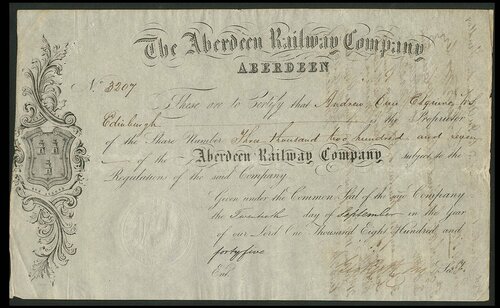 The Aberdeen Railway Company
ABERDEEN
No. 3207
These are to Certify that Andrew
Edinburgh is the Proprietor
of the Share Number Three thousand two hundred and seven
of the Aberdeen Railway Company subject to the
Regulation of the said Company
Given under the Common Seal of the said Company
the Twentieth day of September in the Year
of our Lord One Thousand Eight Hundred and
fortyfive
Entd.
BON ACCORD